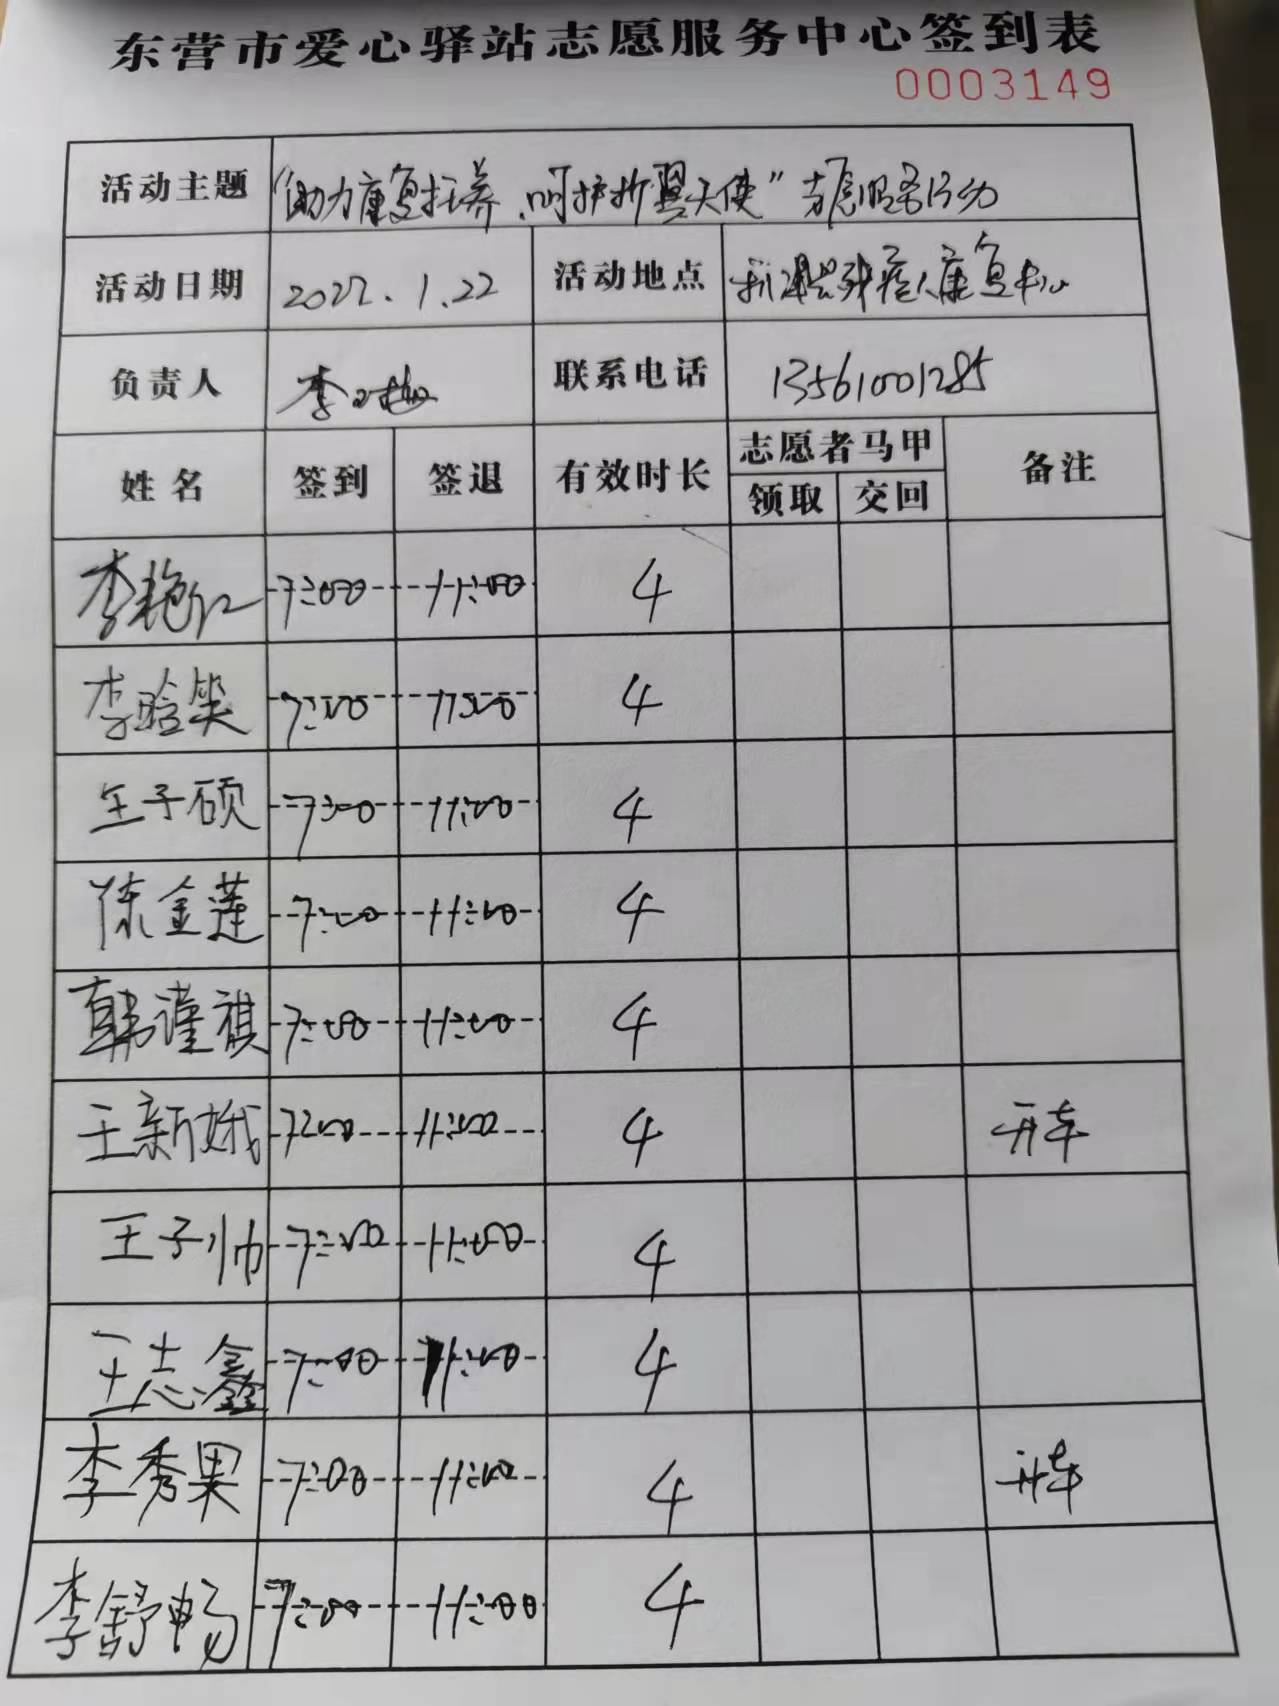 东营市爱心驿站志愿服务中心签到表
0003149
活动主题 “助力康复托养、呵护折翼天使”志愿服务行动
活动日期 2022.1.22 活动地点 利津县残疾人康复中心
负责人 李 联系电话 13561001285
姓名 签到 签退 有效时长 志愿者马甲 备注
领取 交回
李艳红 7:00 11:00 4
李晗笑 7:00 11:00 4
王子硕 7:00 11:00 4
陈金莲 7:00 11:00 4
韩谨祺 7:00 11:00 4
王新娥 7:00 11:00 4 开车
王子帅 7:00 11:00 4
王志鑫 7:00 11:00 4
李秀果 7:00 11:00 4 开车
李舒畅 7:00 11:00 4